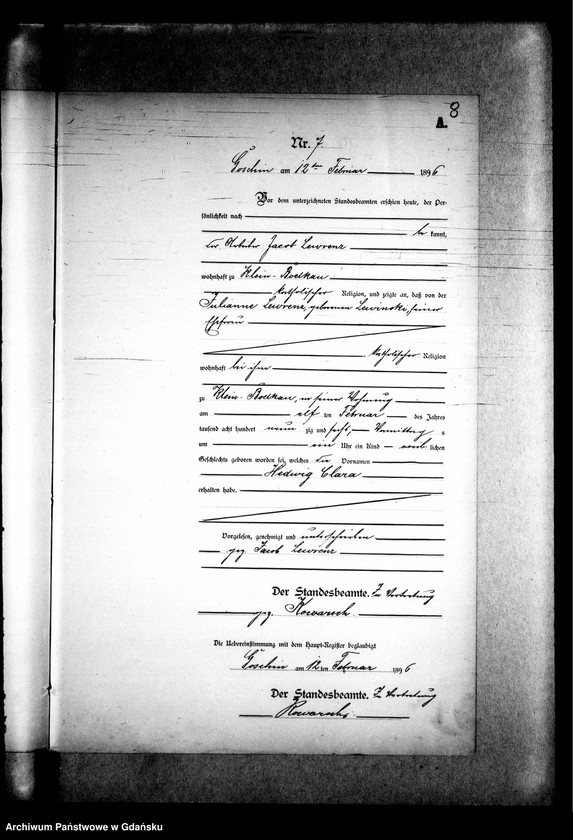 8
A.
Nr. 7.
Goschin am 12ten Februar 1896
Vor dem unterzeichneten Standesbeamten erschien heute, der Per-
sönlichkeit nach
be kannt,
der Arbeiter Jacob Lewrenz
wohnhaft zu Klein-Boelkau
katholischer Religion, und zeigte an, daß von der
Julianne Lewrenz, geborenen Lewinski, seiner
Ehefrau
katholischer Religion
wohnhaft bei ihm
zu Klein-Boelkau, in seiner Wohnung
am elf ten Februar des Jahres
tausend acht hundert neun zig und sechs, Vormittag s
um ein Uhr ein Kind weib lichen
Geschlechts geboren worden sei, welches die Vornamen
Hedwig Clara
erhalten habe.
Vorgelesen, genehmigt und unterschrieben
gez. Jacob Lewrenz
Der Standesbeamte. In Vertretung
gez. Kowarsch
Die Uebereinstimmung mit dem Haupt-Register beglaubigt
Goschin am 12 ten Februar 1896
Der Standesbeamte. In Vertretung
Kowarsch.
Archiwum Państwowe w Gdańsku